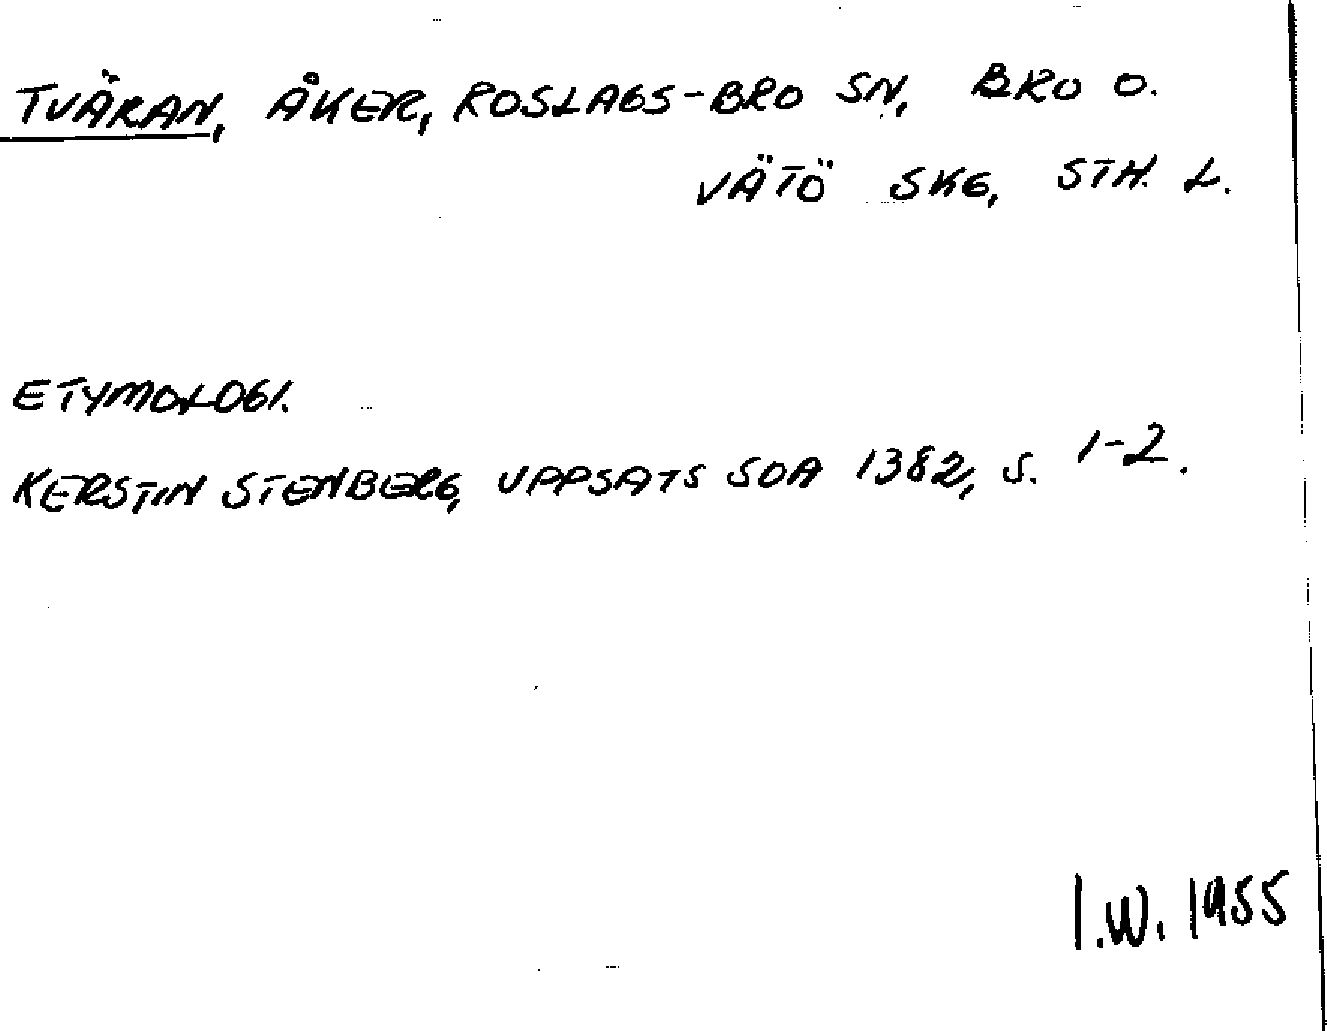 TVÄRAN, ÅKER, ROSLAGS-BRO SN, BRO O.
VÄTÖ SKG, STH. L.
ETYMOLOGI.
KERSTIN STENBERG, UPPSATS SOA 1382, S. 1-2.
I.W. 1955